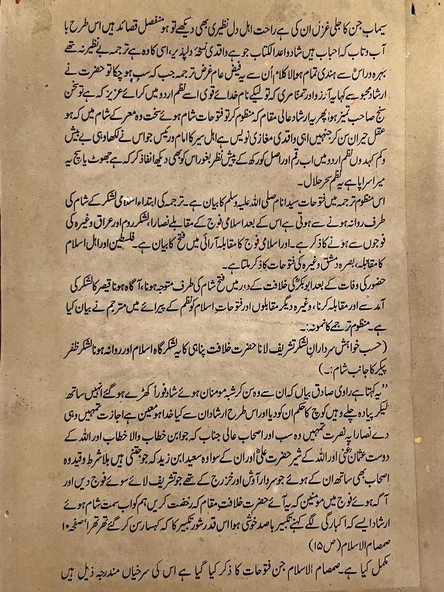 سیماب جن کا جلی غزل ان کی ہے راحت اہل دل نظیری بھی دیکھے تو ہو منفصل قصائد ہیں اس طرح با
آب و تاب کہ احباب ہیں شاد اعدا کتاب جو ہے واقدی نسخۂ دلپذیر، اسی کا وہ ہے ترجمہ بے نظیر نہ تھے
بہرہ ور اس سے ہندی تمام ہوا لا کلام ان سے یہ فیض عام غرض ترجمہ جب کہ سب ہو چکا تو حضرت نے
ارشاد مجھ سے کہا یہ آرزو اور تمنا مری کہ تو لیکے نام خدائے قوی اسے نظم اردو میں کر اے عزیز کہ ہے تو سخن
سنج صاحب تمیز ہوا پھر یہ ارشاد عالی مقام کہ منظوم کر تو فتوحات شام ہوئے سخت وہ معرکے شام میں کہ ہو
عقل حیران سن کر جنہیں اہی واقدی مغازی نویس ہے اہل سیر کا امام و رئیس جو اس نے لکھا وہی بے بیش
وکم کہدوں نظم اردو میں اب رقم اور اصل کو رکھ کے پیش نظر بغور اس کو بھی دیکھ انفاذ کر کہ ہے جھوٹ یا سچ یہ
میرا سراپا ہے یہ نظم سحر حلال۔
اس منظوم ترجمہ میں فتوحات سیدا نام صلی اللہ علیہ وسلم کا بیان ہے۔ ترجمہ کی ابتداء، اسلامی لشکر کے شام کی
طرف روانہ ہونے سے ہوتی ہے اس کے بعد اسلامی فوج کے مقابلے نصارا، لشکر روم اور عراق وغیرہ کی
فوجوں سے ہونے کا ذکر ہے۔ اور اسلامی فوج کا مقابلہ آرائی میں فتح کا بیان ہے۔ فلسطین اور اہل اسلام
کا مقابلہ، بصرہ دمشق وغیرہ کی فتوحات کا ذکر ملتا ہے۔
حضور کی وفات کے بعد ابوبکرؓ کی خلافت کے دور میں فتح شام کی طرف متوجہ ہونا، آگاہ ہونا قیصر کا لشکر کی
آمد سے اور مقابلہ کرنا، وغیرہ دیگر مقابلوں اور فتوحات اسلام کو نظم کے پیرائے میں مترجم نے بیان کیا
ہے۔ منظوم ترجمے کا نمونہ:۔
(حسب خواہش سرداران لشکر تشریف لانا حضرت خلافت پناہی کا یہ لشکر گاہ اسلام اور روانہ ہونا لشکر ظفر
پیکر کا جانب شام:۔)
’’یہ کہتا ہے راوی صادق بیاں کہ ان سے وہ سن کر شبہ مومنان ہوئے شاد فوراً اکھڑے ہو گئے انہیں ساتھ
لیکر پیادہ چلے وہیں کوچ کا حکم ان کو دیا اور اس طرح ارشاد ان سے کیا خدا ہو معین ہے اجازت تمہیں وہی
دے نصارا پہ نصرت تمہیں وہ سب اور اصحاب عالی جناب کہ جو ابن خطاب والا خطاب اور اللہ کے
دوست عثمان غنیؓ اور اللہ کے شیر حضرت علیؓ اور ان کے سوا وہ سعید ابن زید کہ جو جنتی ہیں بلا شرط وقید وہ
اصحاب بھی ساتھ ان کے ہوئے جو سردار آوش اور خزرج کے تھے جو تشریف لائے سوئے فوج دیں اور
آگہ ہوئے فوج میں مومنین کہ یہ آئے حضرت خلافت مقام کہ رخصت کریں ہم کو اب سمت شام ہوئے
ارشاد ایسے کہ اکبار کی لگے کہنے تکبیر با صد خوشی ہوا اس قدر شور تکبیر کا کہ کہسار سن کر لگے تھر تھرا‘‘ صفحہ ۱۰
صمصام الاسلام (ص ۱۵)
مکمل کیا ہے۔ صمصام الاسلام جن فتوحات کا ذکر کیا گیا ہے اس کی سرخیاں مندرجہ ذیل ہیں